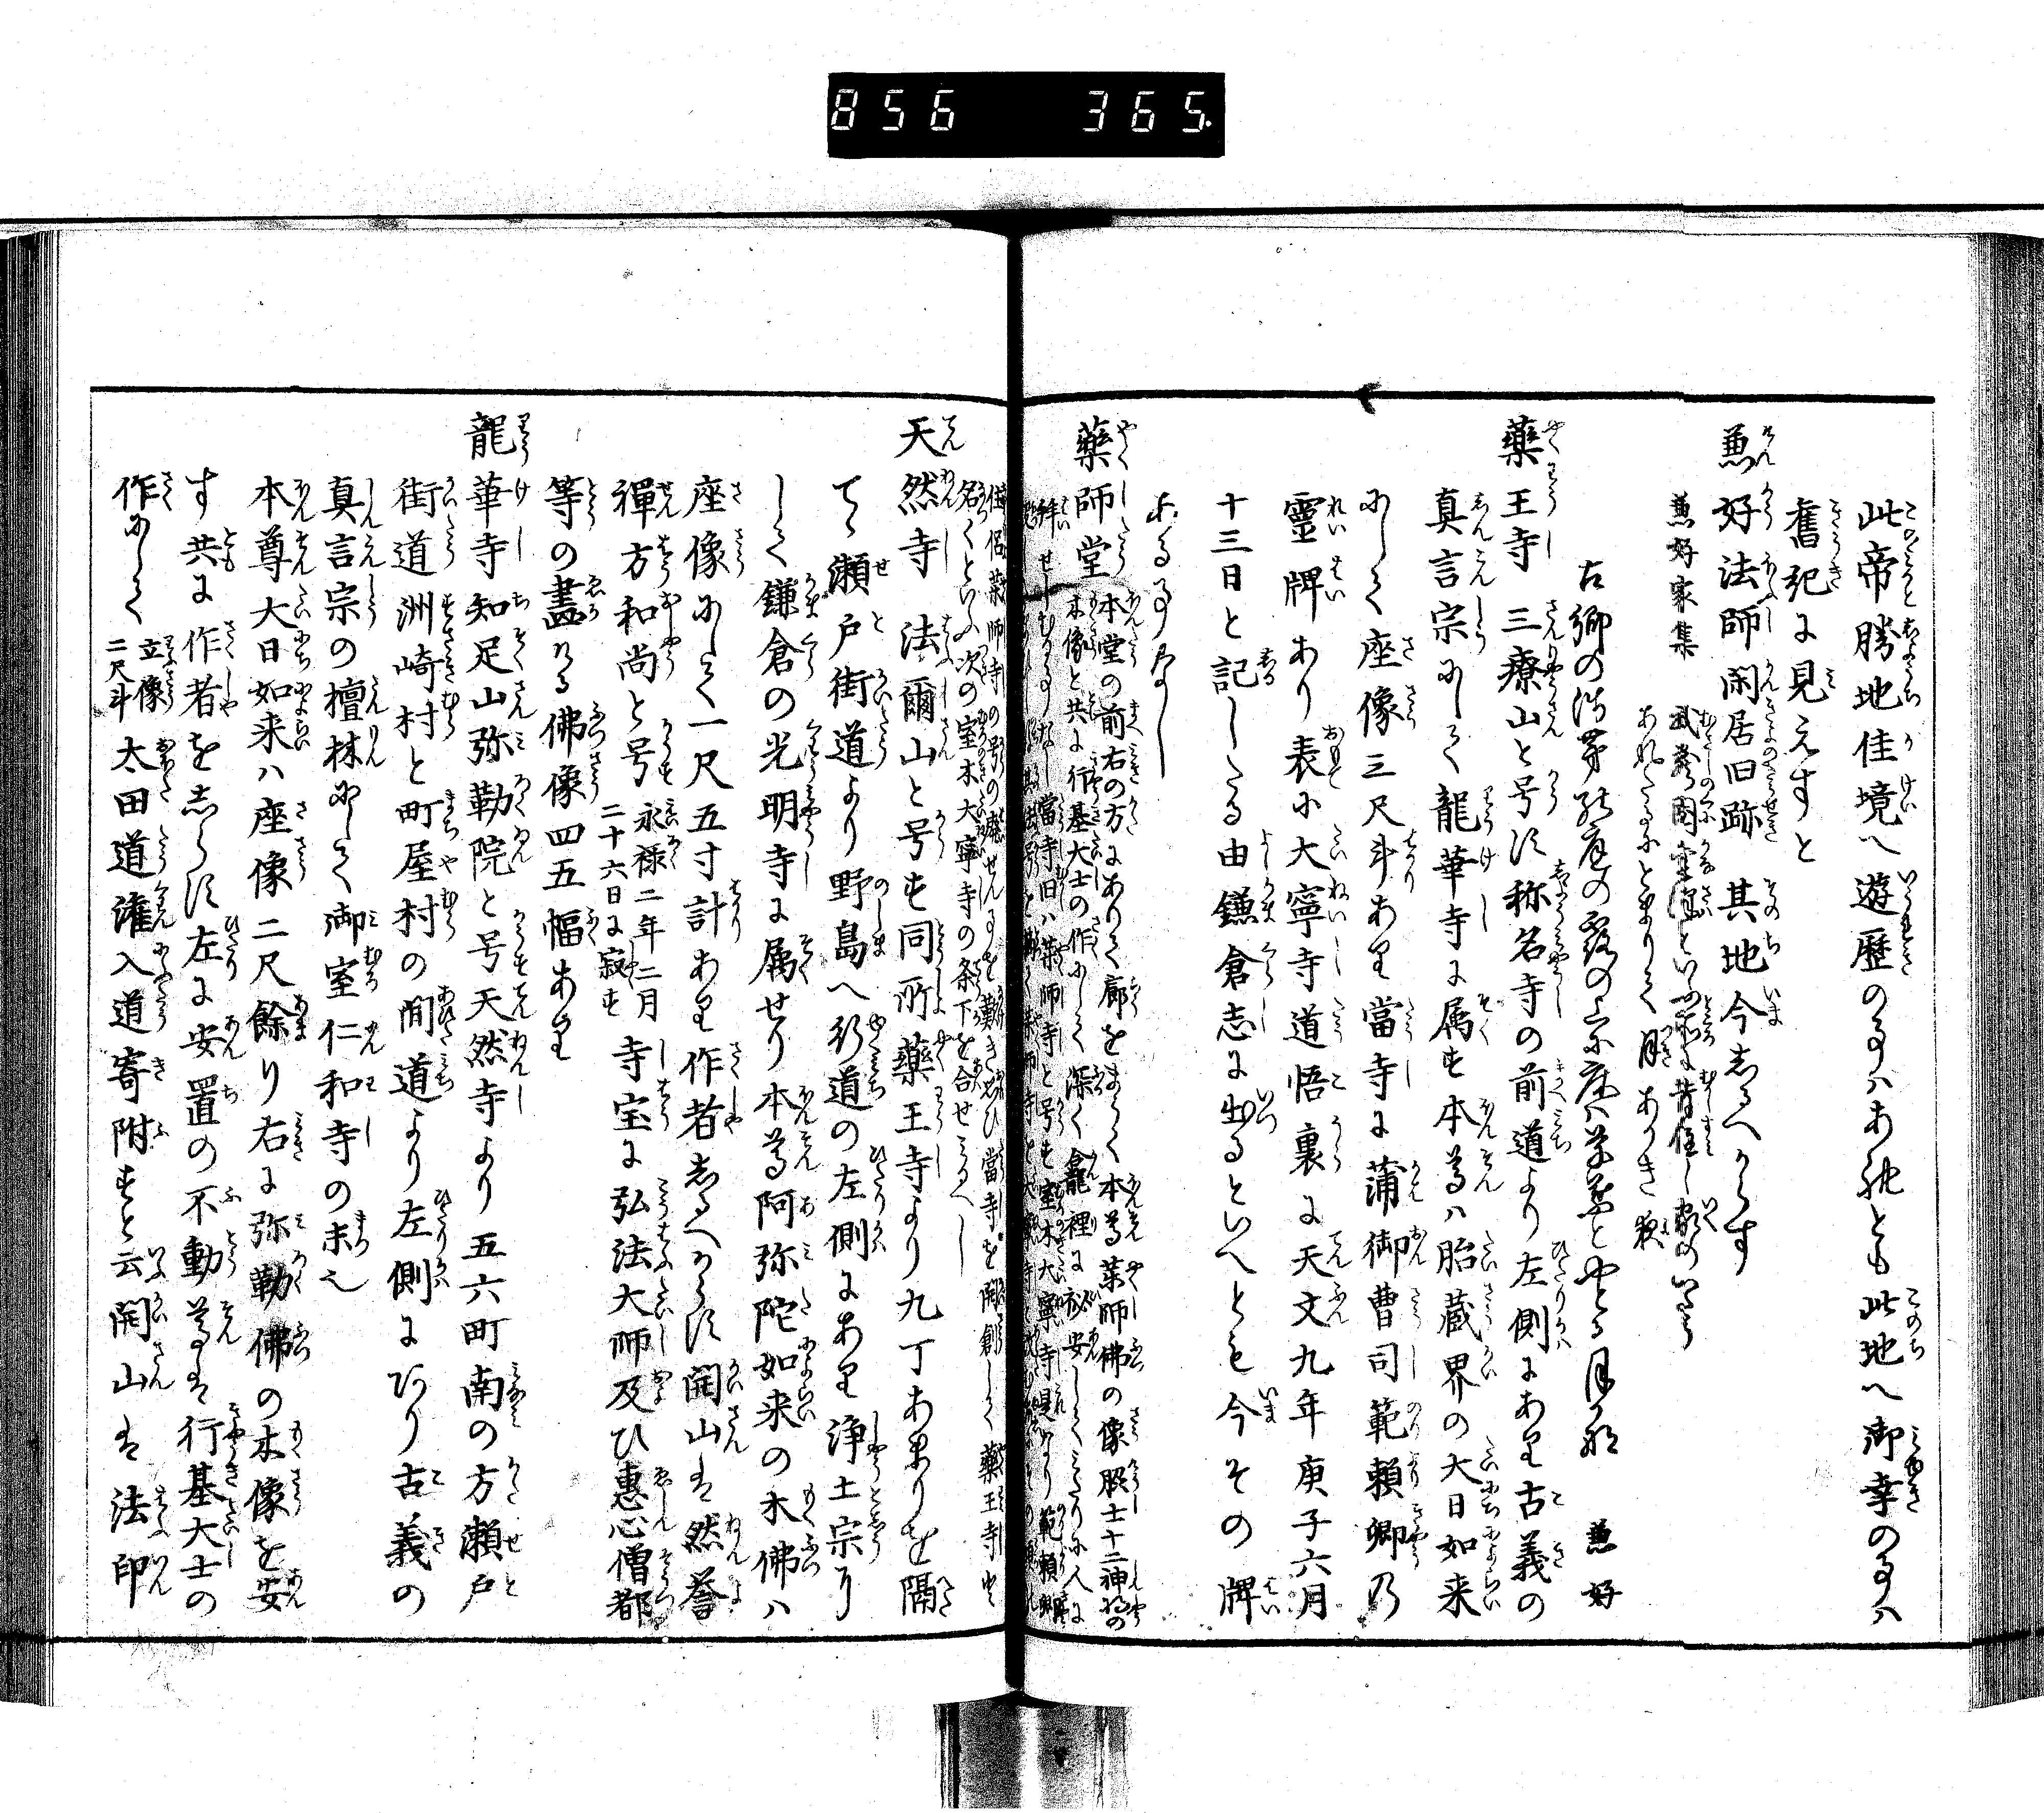 856 365.
此帝勝地佳境へ遊歴の事ハあれとも此地へ御幸の事ハ
舊記に見えすと
兼好法師閑居旧跡 其地今志るへからす
兼好家集 武蔵国金沢といふ所に昔住し家の
あれたるにとまりて月あかき夜
古郷の浅茅 庭の露の 床ハ草葉とやとる月 兼好
薬王寺 三療山と号す称名寺の前道より左側にあり古義の
真言宗にして龍華寺に属す本尊ハ胎蔵界の大日如来
にして座像三尺斗あり當寺に蒲御曹司範頼卿の
靈牌あり表に大寧寺道悟裏に天文九年庚子六月
十三日と記したる由鎌倉志に出るといへとも今その牌
ある事なし
薬師堂 本堂の前右の方にありて廊をまうく本尊薬師佛の像脇士十二神将の
木像と共に行基大士の作にして深く龕裡に秘安してみたりに人に
拝せしむる事なし當寺旧ハ薬師寺と号す室木大寧寺是なり範頼卿
住侶薬師寺の号の廃せん事を歎き 當寺を開創して薬王寺と
名くといふ次の室木大寧寺の条下を合せみるへし
天然寺 法爾山と号す同所薬王寺より九丁あまりを隔
てゝ瀬戸街道より野島へ行道の左側にあり浄土宗に
して鎌倉の光明寺に属せり本尊阿弥陀如来の木佛ハ
座像にして一尺五寸計あり作者志るへからす開山を然誉
禅方和尚と号 永禄二年二月二十六日に寂す 寺宝に弘法大師及ひ惠心僧都
等の畫ける佛像四五幅あり
龍華寺 知足山弥勒院と号天然寺より五六町南の方瀬戸
街道洲崎村と町屋村の間道より左側にあり古義の
真言宗の檀林にして御室仁和寺の末也
本尊大日如来ハ座像二尺餘り右に弥勒佛の木像を安
す共に作者を志らす左に安置の不動尊は行基大士の
作にして 立像二尺斗 太田道潅入道寄附すと云開山は法印